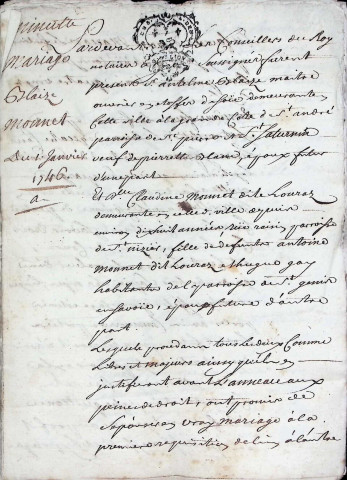 minutte
mariage
Blaize
Monnet
Du 1 Janvier
1746
Pardevant les Conseillers du Roy
notaires soussignés furent
present Sr antelme Blaize maitre
ouvrier en etoffes de soie demeurant en
cette ville à la grande Côte de St andré
paroisse de St pierre et St Saturnin
veuf de pierrette Blanc, époux futur
d'une part
Et Dlle Claudine Monnet dite Louraz
demeurante en cette ditte ville depuis
environ dix huit années rue raisin paroisse
de St nizier, fille de deffunts antoine
Monnet dit Louraz et gay
habitants de la paroisse de St genix
en Savoie, épouse future d'autre
part
Lesquels procedants tous les deux Comme
Libres et majeurs ainsy qu'ils en
justifieront avant L'anneau aux
peines de droit; ont promis de
se prendre en vray mariage à la
premiere requisition de l'un à l'autre